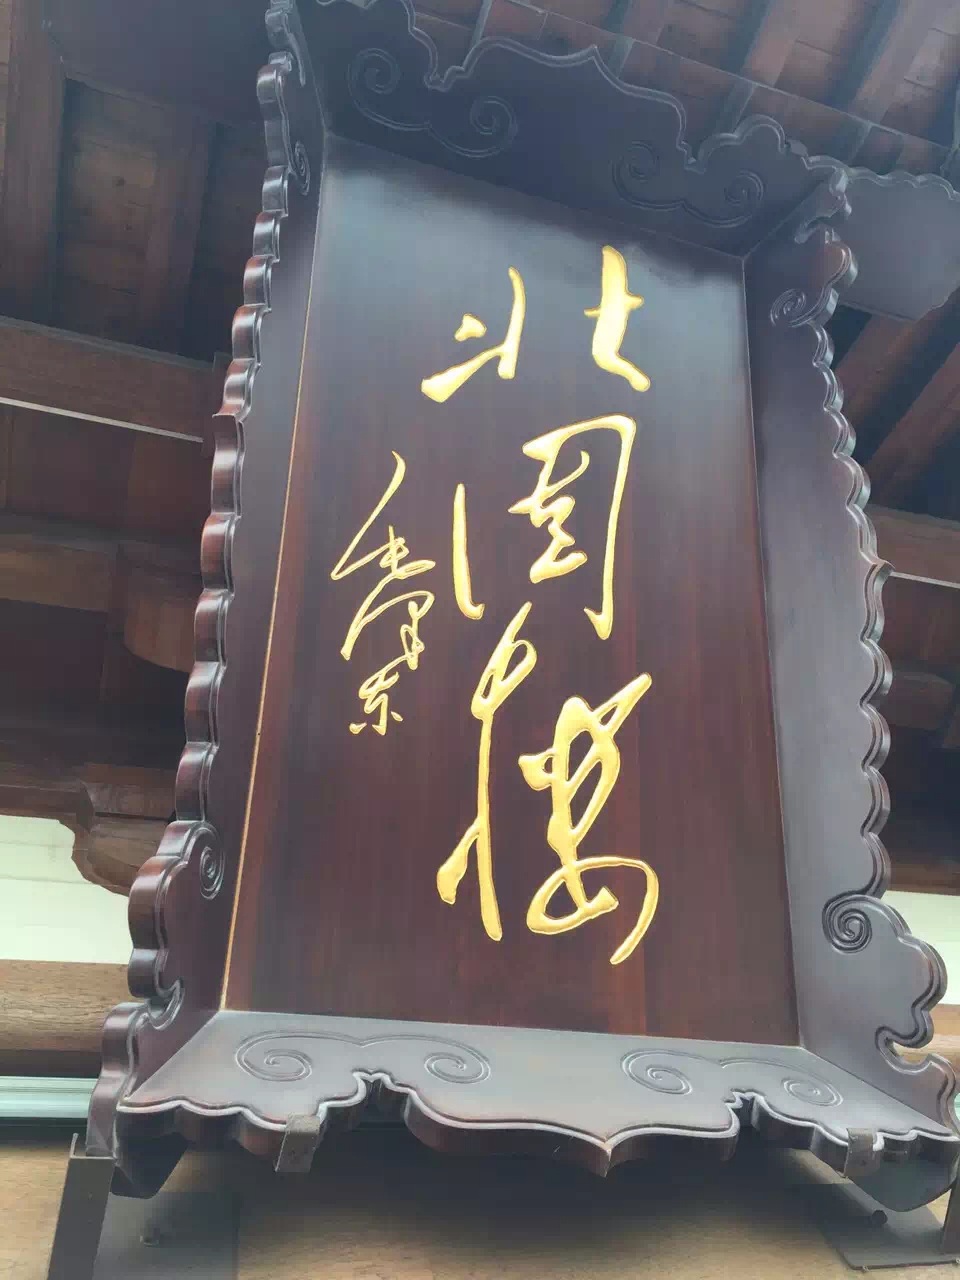 北固楼
毛泽东